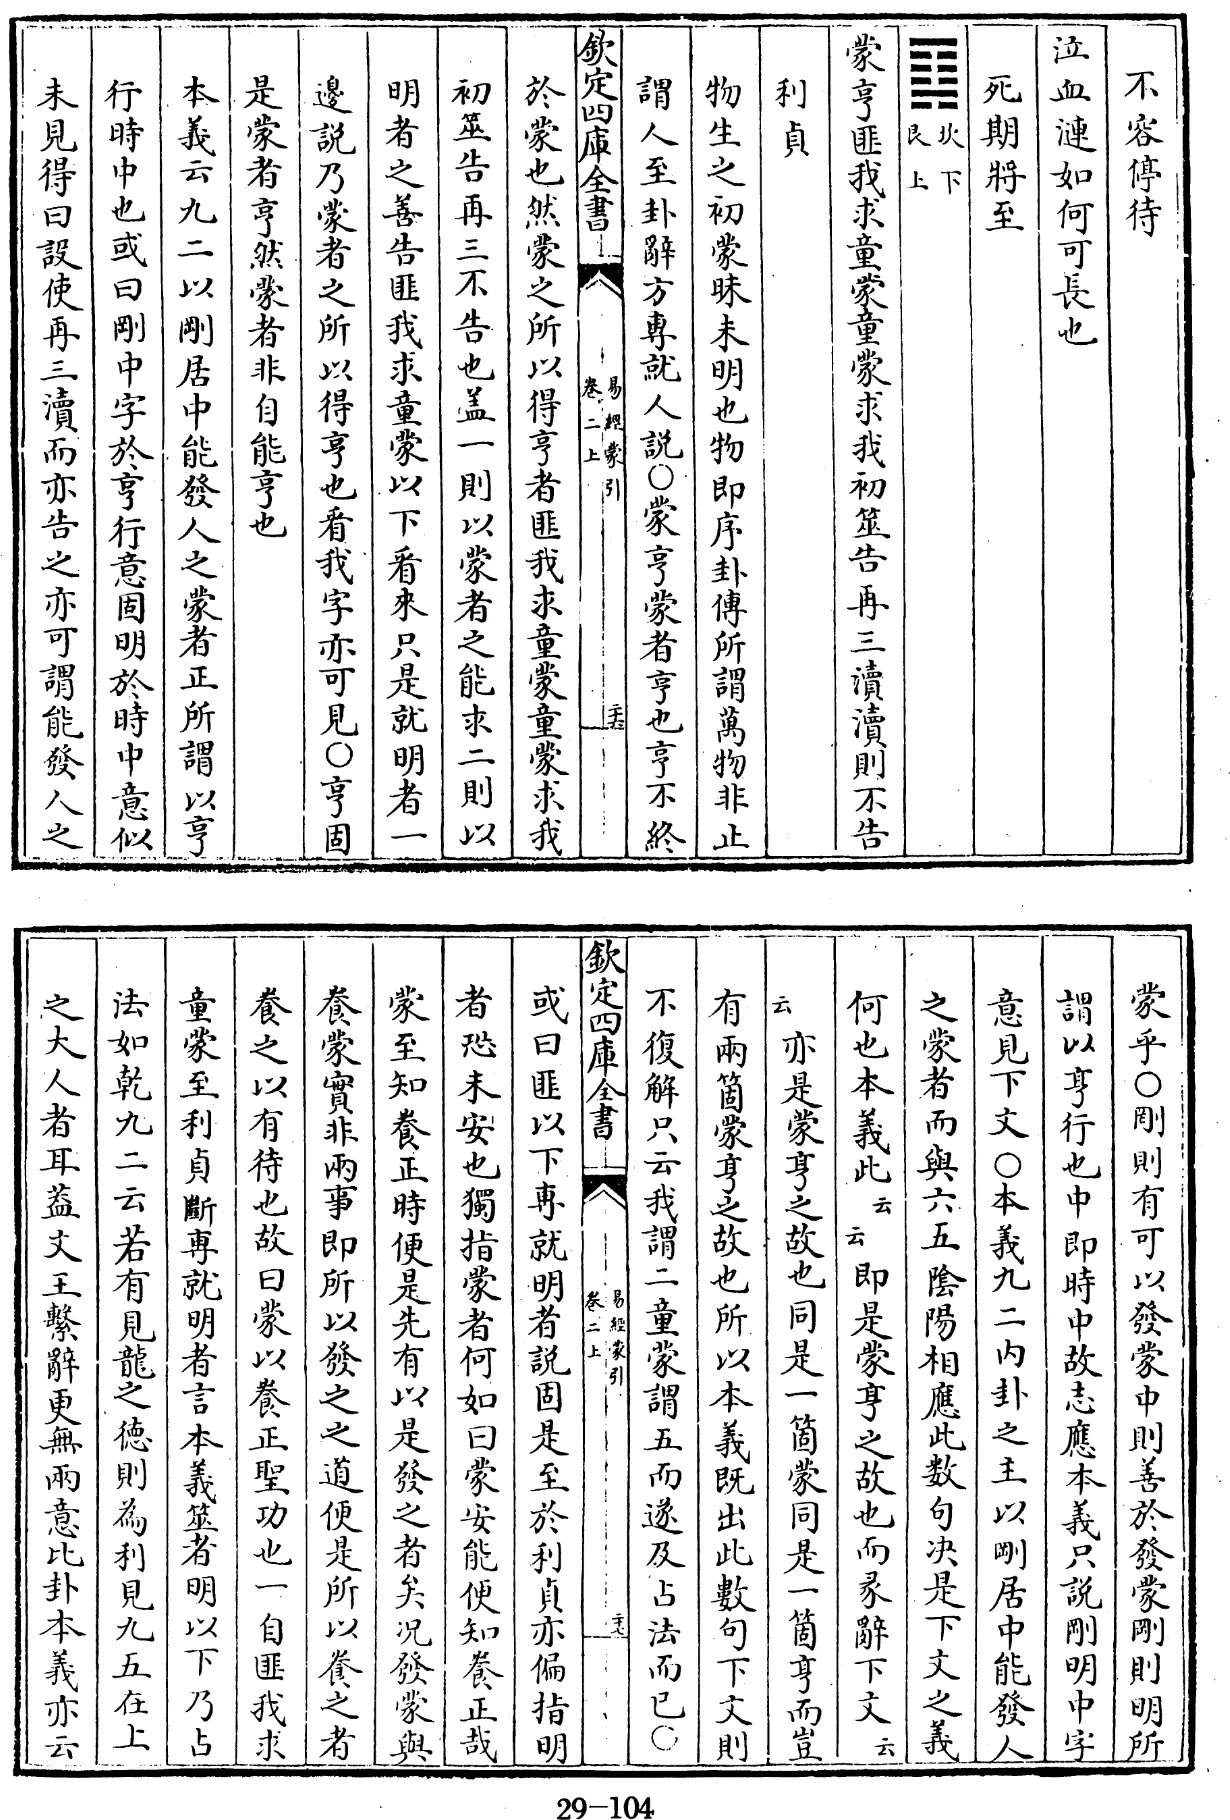 不容停待
泣血漣如何可長也
死期將至
䷃ 坎下艮上
蒙亨匪我求童蒙童蒙求我初筮告再三瀆瀆則不告
利貞
物生之初蒙昧未明也物即序卦傳所謂萬物非止
謂人至卦辭方專就人説○蒙亨蒙者亨也亨不終
欽定四庫全書
易經蒙引
卷二上
二十六
於蒙也然蒙之所以得亨者匪我求童蒙童蒙求我
初筮告再三不告也盖一則以蒙者之能求二則以
明者之善告匪我求童蒙以下看來只是就明者一
邊説乃蒙者之所以得亨也看我字亦可見○亨固
是蒙者亨然蒙者非自能亨也
本義云九二以剛居中能發人之蒙者正所謂以亨
行時中也或曰剛中字於亨行意固明於時中意似
未見得曰設使再三瀆而亦告之亦可謂能發人之
蒙乎○剛則有可以發蒙中則善於發蒙剛則明所
謂以亨行也中即時中故志應本義只説剛明中字
意見下文○本義九二内卦之主以剛居中能發人
之蒙者而與六五陰陽相應此数句決是下文之義
何也本義此云云即是蒙亨之故也而彖辭下文云
云亦是蒙亨之故也同是一箇蒙同是一箇亨而豈
有兩箇蒙亨之故也所以本義既出此數句下文則
不復解只云我謂二童蒙謂五而遂及占法而已○
欽定四庫全書
易經蒙引
卷二上
二十七
或曰匪以下專就明者説固是至於利貞亦偏指明
者恐未安也獨指蒙者何如曰蒙安能便知養正哉
蒙至知養正時便是先有以是發之者矣况發蒙與
養蒙實非兩事即所以發之之道便是所以養之者
養之以有待也故曰蒙以養正聖功也一自匪我求
童蒙至利貞斷專就明者言本義筮者明以下乃占
法如乾九二云若有見龍之德則為利見九五在上
之大人者耳葢文王繫辭更無兩意比卦本義亦云
29-104